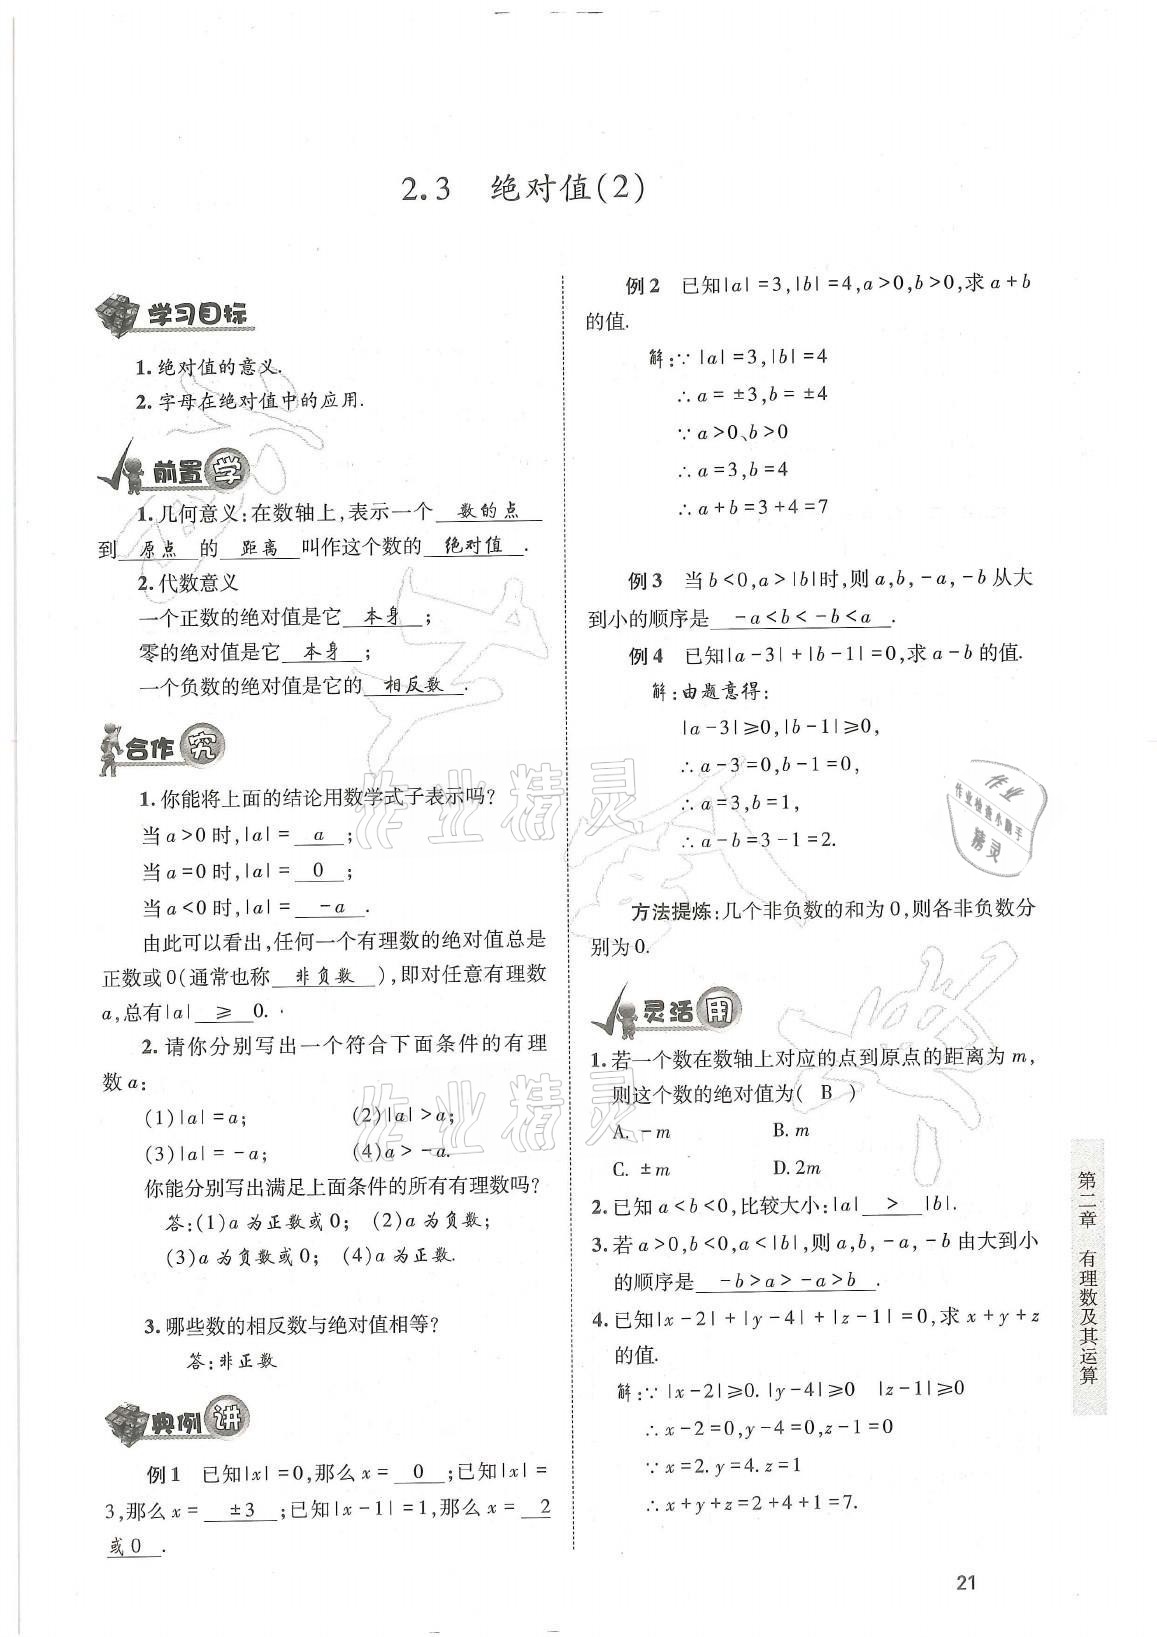 2.3 绝对值(2)
学习目标
1. 绝对值的意义.
2. 字母在绝对值中的应用.
前置 学
1. 几何意义:在数轴上,表示一个 数的点
到 原点 的 距离 叫作这个数的 绝对值 .
2. 代数意义
一个正数的绝对值是它 本身 ;
零的绝对值是它 本身 ;
一个负数的绝对值是它的 相反数 .
合作 究
1. 你能将上面的结论用数学式子表示吗?
当 a>0 时,|a|= a ;
当 a=0 时,|a|= 0 ;
当 a<0 时,|a|= -a .
由此可以看出,任何一个有理数的绝对值总是
正数或 0(通常也称 非负数 ),即对任意有理数
a,总有|a| ≥ 0.
2. 请你分别写出一个符合下面条件的有理
数 a:
(1)|a|=a; (2)|a|>a;
(3)|a|=-a; (4)a>-a.
你能分别写出满足上面条件的所有有理数吗?
答:(1)a 为正数或0; (2)a 为负数;
(3)a 为负数或0; (4)a 为正数.
3. 哪些数的相反数与绝对值相等?
答:非正数
典例 讲
例1 已知|x|=0,那么 x= 0 ;已知|x|=
3,那么 x= ±3 ;已知|x-1|=1,那么 x= 2
或0 .
例2 已知|a|=3,|b|=4,a>0,b>0,求 a+b
的值.
解:∵|a|=3,|b|=4
∴a=±3,b=±4
∵a>0、b>0
∴a=3,b=4
∴a+b=3+4=7
例3 当 b<0,a>|b|时,则 a,b,-a,-b 从大
到小的顺序是 -a<b<-b<a .
例4 已知|a-3|+|b-1|=0,求 a-b 的值.
解:由题意得:
|a-3|≥0,|b-1|≥0,
∴a-3=0,b-1=0,
∴a=3,b=1,
∴a-b=3-1=2.
方法提炼:几个非负数的和为 0,则各非负数分
别为 0.
灵活 用
1. 若一个数在数轴上对应的点到原点的距离为 m,
则这个数的绝对值为( B )
A. -m B. m
C. ±m D. 2m
2. 已知 a<b<0,比较大小:|a| > |b|.
3. 若 a>0,b<0,a<|b|,则 a,b,-a,-b 由大到小
的顺序是 -b>a>-a>b .
4. 已知|x-2|+|y-4|+|z-1|=0,求 x+y+z
的值.
解:∵|x-2|≥0.|y-4|≥0 |z-1|≥0
∴x-2=0,y-4=0,z-1=0
∵x=2.y=4.z=1
∴x+y+z=2+4+1=7.
第二章 有理数及其运算
21
作业精灵
作业精灵
作业
作业检查小助手
精灵